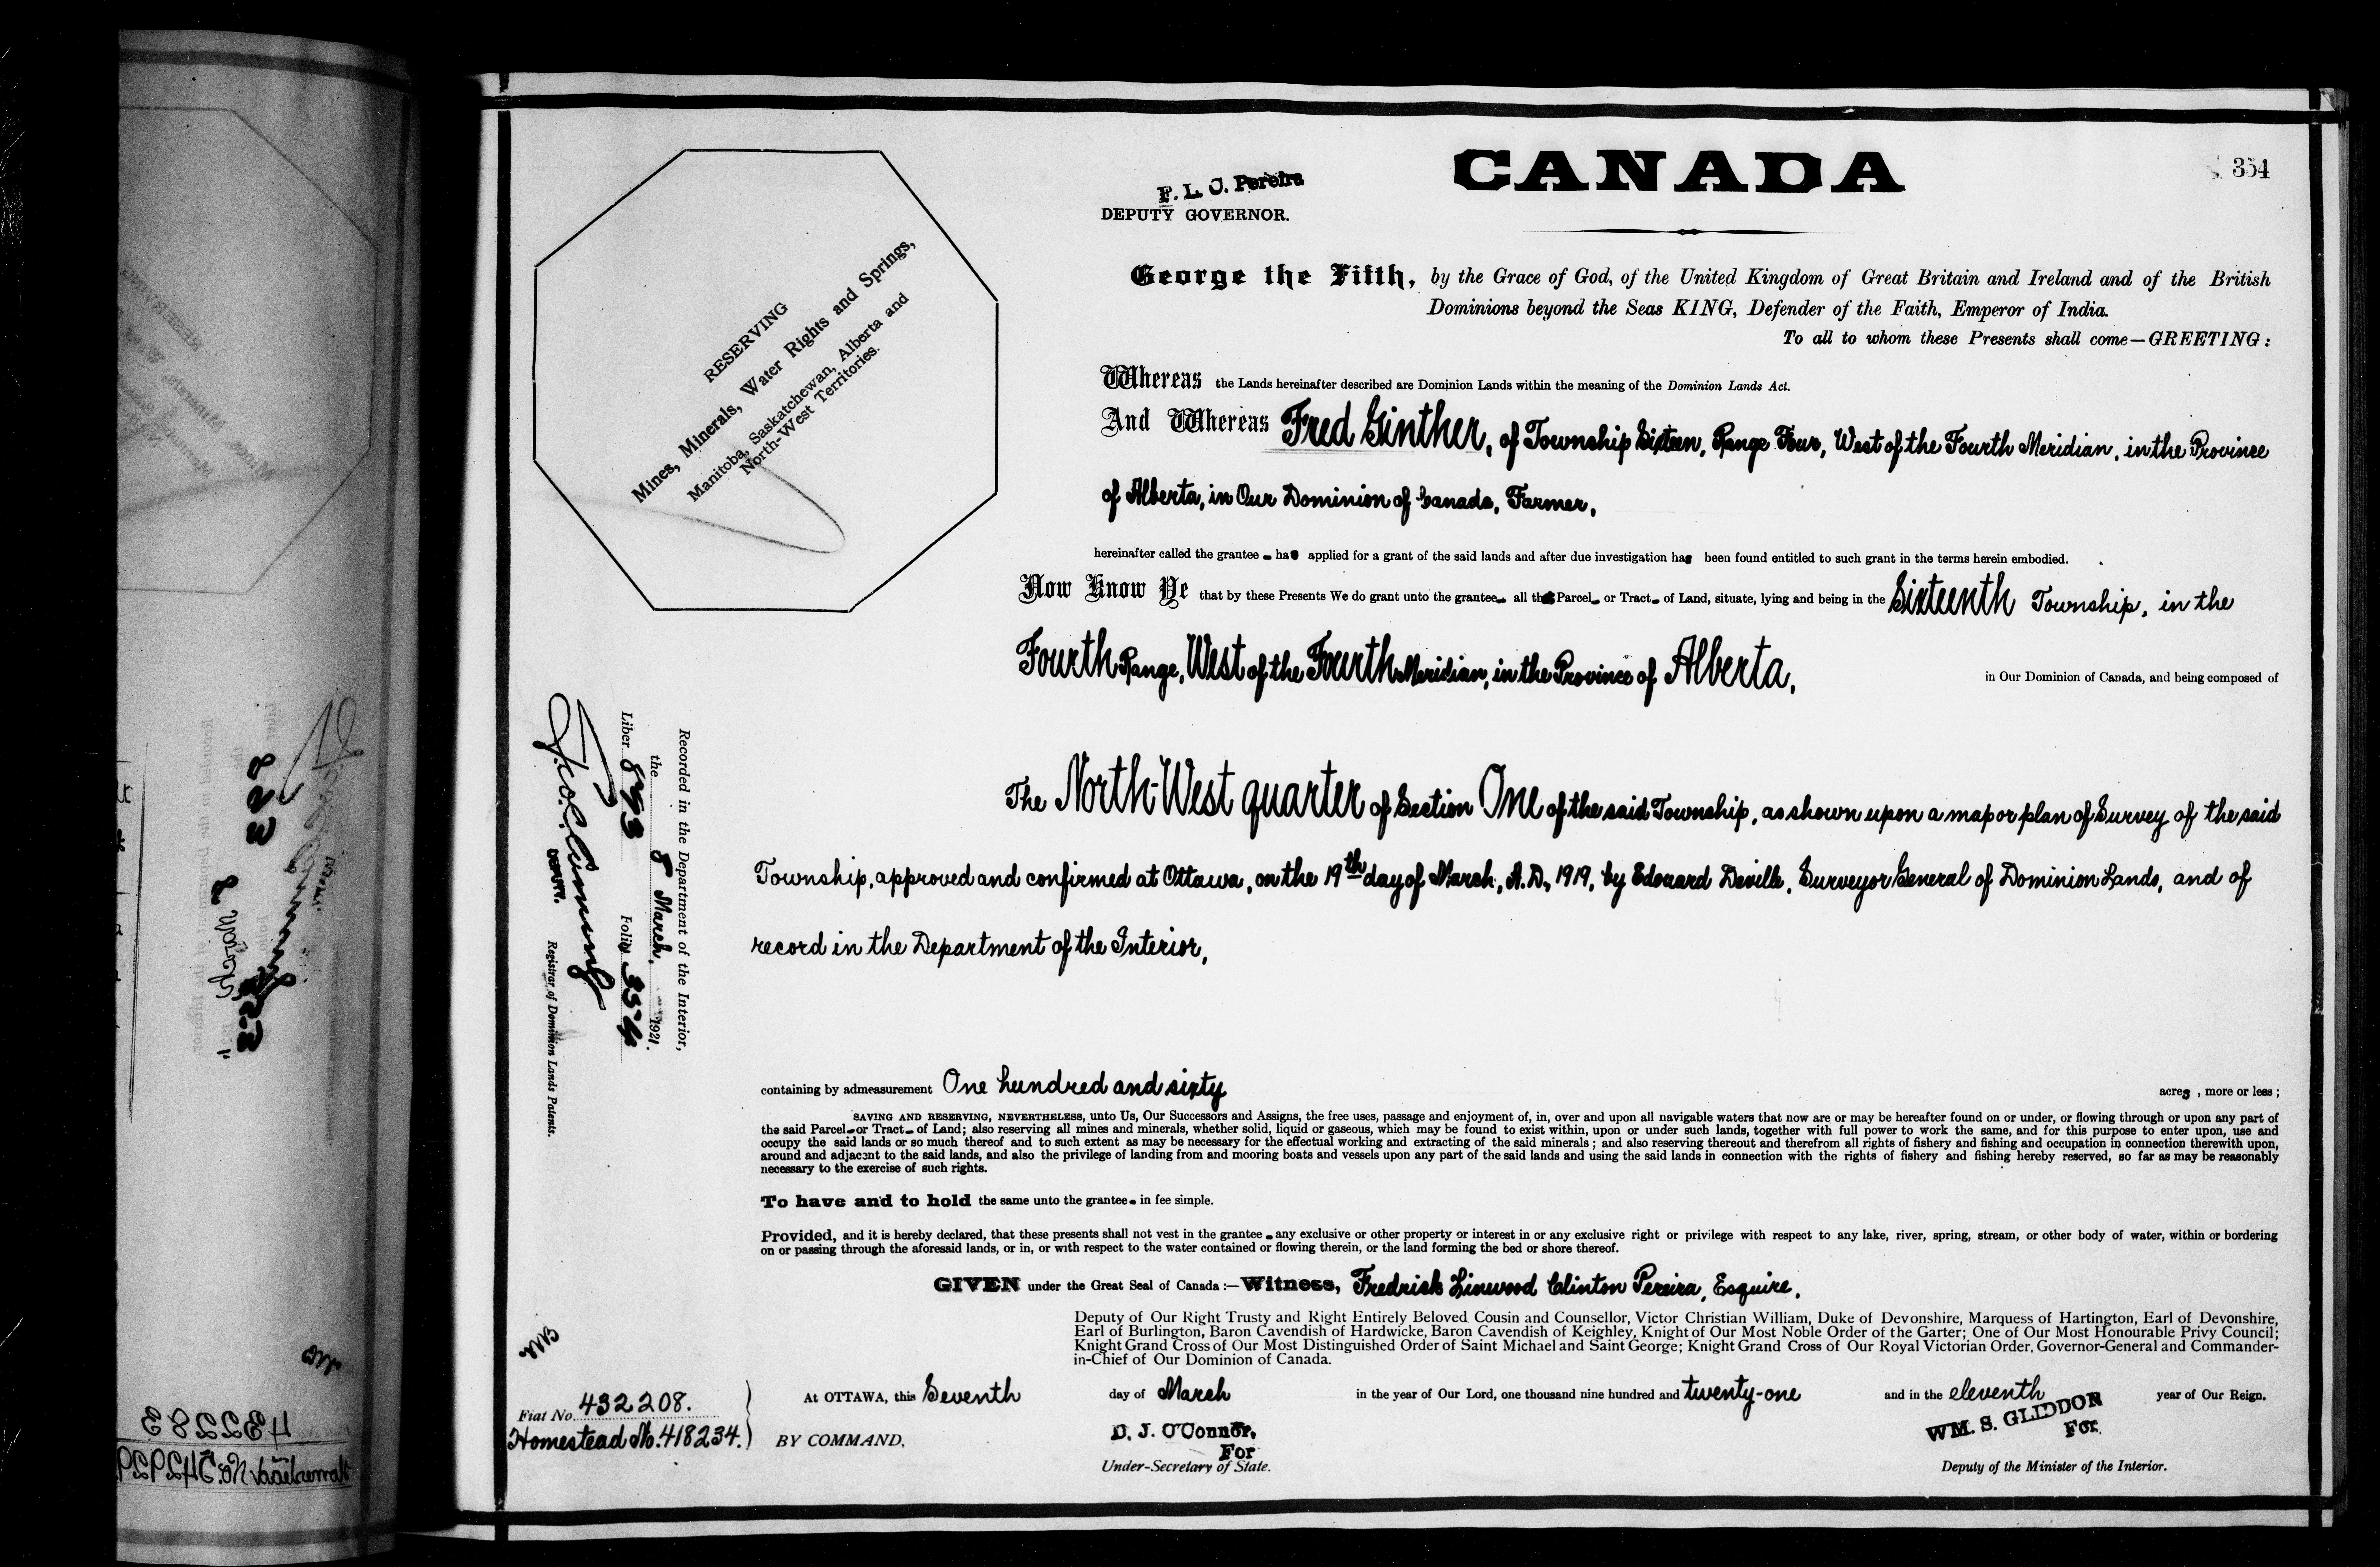 CANADA
354
F. L. C. Pereira
DEPUTY GOVERNOR.
George the Fifth, by the Grace of God, of the United Kingdom of Great Britain and Ireland and of the British
Dominions beyond the Seas KING, Defender of the Faith, Emperor of India.
To all to whom these Presents shall come—GREETING:
RESERVING
Mines, Minerals, Water Rights and Springs,
Manitoba, Saskatchewan, Alberta and
North-West Territories.
Whereas the Lands hereinafter described are Dominion Lands within the meaning of the Dominion Lands Act.
And Whereas Fred Ginther, of Township Sixteen, Range Four, West of the Fourth Meridian, in the Province
of Alberta, in Our Dominion of Canada, Farmer,
hereinafter called the grantee has applied for a grant of the said lands and after due investigation has been found entitled to such grant in the terms herein embodied.
Now Know Ye that by these Presents We do grant unto the grantee all that Parcel or Tract of Land, situate, lying and being in the Sixteenth Township, in the
Fourth Range, West of the Fourth Meridian, in the Province of Alberta, in Our Dominion of Canada, and being composed of
The North-West quarter of Section One of the said Township, as shown upon a map or plan of Survey of the said
Township, approved and confirmed at Ottawa, on the 19th day of March, A.D., 1919, by Edouard Deville, Surveyor General of Dominion Lands, and of
record in the Department of the Interior,
Recorded in the Department of the Interior,
the 8 March, 1921.
Liber 893 Folio 354
DEPUTY.
Registrar of Dominion Lands Patents.
containing by admeasurement One hundred and sixty acres, more or less;
SAVING AND RESERVING, NEVERTHELESS, unto Us, Our Successors and Assigns, the free uses, passage and enjoyment of, in, over and upon all navigable waters that now are or may be hereafter found on or under, or flowing through or upon any part of
the said Parcel or Tract of Land; also reserving all mines and minerals, whether solid, liquid or gaseous, which may be found to exist within, upon or under such lands, together with full power to work the same, and for this purpose to enter upon, use and
occupy the said lands or so much thereof and to such extent as may be necessary for the effectual working and extracting of the said minerals; and also reserving thereout and therefrom all rights of fishery and fishing and occupation in connection therewith upon,
around and adjacent to the said lands, and also the privilege of landing from and mooring boats and vessels upon any part of the said lands and using the said lands in connection with the rights of fishery and fishing hereby reserved, so far as may be reasonably
necessary to the exercise of such rights.
To have and to hold the same unto the grantee in fee simple.
Provided, and it is hereby declared, that these presents shall not vest in the grantee any exclusive or other property or interest in or any exclusive right or privilege with respect to any lake, river, spring, stream, or other body of water, within or bordering
on or passing through the aforesaid lands, or in, or with respect to the water contained or flowing therein, or the land forming the bed or shore thereof.
GIVEN under the Great Seal of Canada:—Witness, Fredrick Linwood Clinton Pereira, Esquire,
Deputy of Our Right Trusty and Right Entirely Beloved Cousin and Counsellor, Victor Christian William, Duke of Devonshire, Marquess of Hartington, Earl of Devonshire,
Earl of Burlington, Baron Cavendish of Hardwicke, Baron Cavendish of Keighley, Knight of Our Most Noble Order of the Garter; One of Our Most Honourable Privy Council;
Knight Grand Cross of Our Most Distinguished Order of Saint Michael and Saint George; Knight Grand Cross of Our Royal Victorian Order, Governor-General and Commander-
in-Chief of Our Dominion of Canada.
At OTTAWA, this Seventh day of March in the year of Our Lord, one thousand nine hundred and twenty-one and in the eleventh year of Our Reign.
Fiat No. 432208.
Homestead No. 418234.
BY COMMAND,
D. J. O'Connor,
For
Under-Secretary of State.
WM. S. GLIDDON
For
Deputy of the Minister of the Interior.